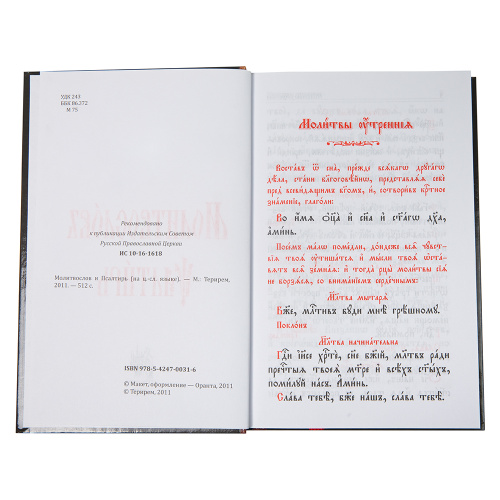 УДК 243
ББК 86.372
М 75
Рекомендовано
к публикации Издательским Советом
Русской Православной Церкви
ИС 10-16-1618
Молитвослов и Псалтирь (на ц.-сл. языке). — М.: Терирем,
2011. — 512 с.
ISBN 978-5-4247-0031-6
© Макет, оформление — Оранта, 2011
© Терирем, 2011
Моли̑твы ᲂу҆́треннїѧ
Воста́въ ѿ сна̀, пре́жде всѧ́кагѡ дрꙋга́гѡ
дѣ́ла, ста́ни благоговѣ́йнѡ, представлѧ́ѧ себѐ
пред̾ всеви́дѧщимъ бг҃омъ, и҆, сотвори́въ крⷭ҇тное
зна́менїе, глаго́ли:
Во и҆́мѧ ѻ҆ц҃а̀ и҆ сн҃а и҆ ст҃а́гѡ дх҃а,
а҆ми́нь.
Посе́мъ ма́лѡ пома́дли, до́ндеже всѧ̑ чꙋ̑вст-
вїѧ твоѧ̑ ᲂу҆тиша́тсѧ и҆ мы̑сли твоѧ̑ ѡ҆ста́-
вѧтъ всѧ̑ земна̑ѧ: и҆ тогда̀ рцы̀ моли̑твы сїѧ̑ не
борзѧ́сѧ, со внима́нїемъ серде́чнымъ:
Мл҃тва мытарѧ̀
Бж҃е, млⷭ҇тивъ бꙋ́ди мнѣ̀ грѣ́шномꙋ.
Покло́нъ
Мл҃тва начина́тельна
Гдⷭ҇и і҆и҃се хрⷭ҇тѐ, сн҃е бж҃їй, мл҃твъ ра́ди
пречⷭ҇тыѧ твоеѧ̀ мт҃ре и҆ всѣ́хъ ст҃ы́хъ,
поми́лꙋй на́съ. А҆ми́нь.
Сла́ва тебѣ̀, бж҃е на́шъ, сла́ва тебѣ̀.